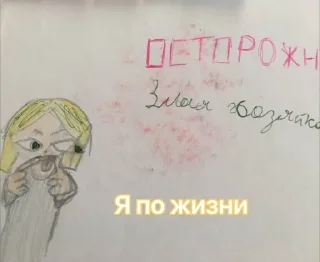 ОСТОРОЖН
Злая хозяйка
Я по жизни